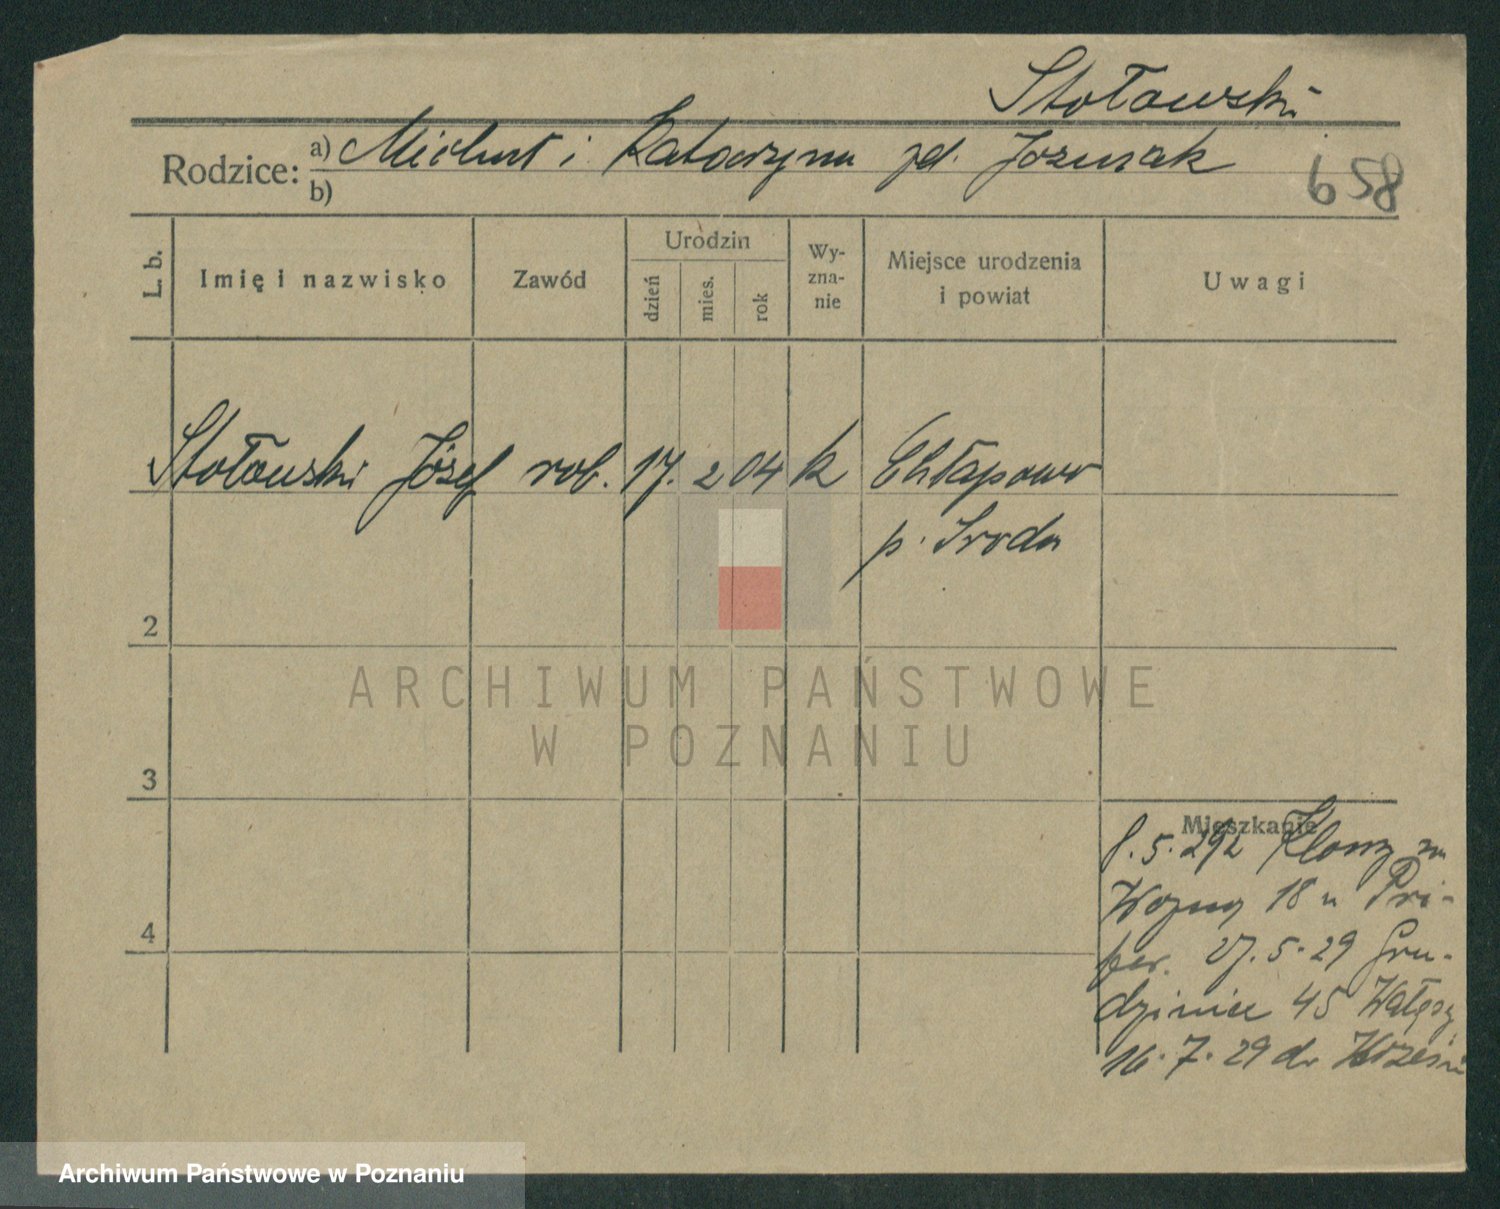 Stołowski
Rodzice: a) Michał i Katarzyna zd. Józwiak
b)
658
L. b. Imię i nazwisko Zawód Urodzin dzień mies. rok Wy-zna-nie Miejsce urodzenia i powiat Uwagi
Stołowski Józef rob. 17. 2 04 k Chłapowo
p. Sroda
2
ARCHIWUM PAŃSTWOWE
W POZNANIU
3
Mieszkanie
8.5.29 z
Wozny 18 u Pri-
fer. 27.5.29 Gru-
dzieniec 45
16.7.29 do Wrześni
4
Archiwum Państwowe w Poznaniu